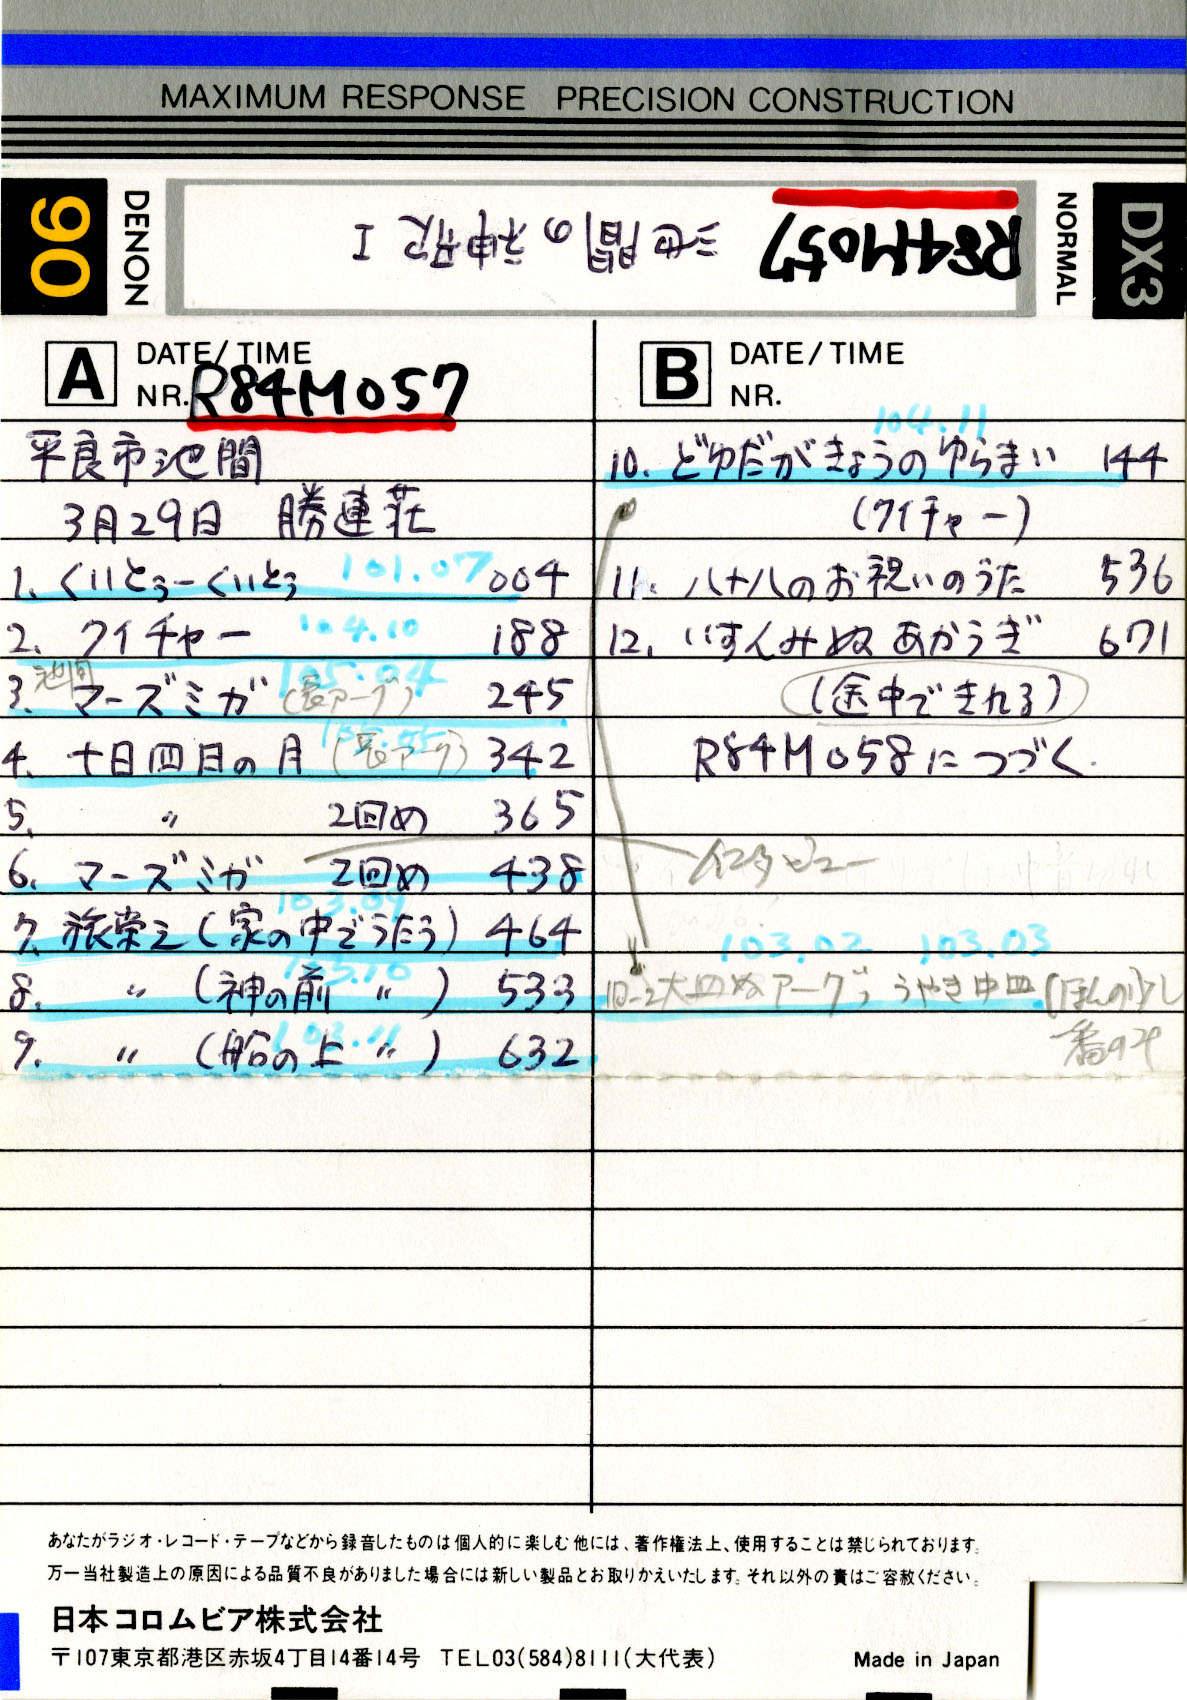 MAXIMUM RESPONSE PRECISION CONSTRUCTION
90
DENON
R84M057 池間の神歌 I
NORMAL
DX3
A DATE/TIME
NR. R84M057
平良市池間
3月29日 勝連荘
1. くいとぅーくいとぅ 101.07 004
2. クイチャー 104.10 188
3. 池間マーズミガ (長アーグ) 105.04 245
4. 十日四日の月 (長アーグ) 342
5. 〃 2回め 365
6. マーズミガ 2回め 438
7. 旅栄え (家の中でうたう) 103.09 464
8. 〃 (神の前 〃 ) 103.10 533
9. 〃 (船の上 〃 ) 103.11 632
B DATE/TIME
NR.
104.11
10. どゆだがきょうのゆらまい 144
(クイチャー)
11. 八十八のお祝いのうた 536
12. いすんみぬあかうぎ 671
(途中できれる)
R84M058につづく
インタビュー
103.02 103.03
10-2 大皿ぬアーグ, うやき中皿 (ほんの少し
一番のみ
あなたがラジオ・レコード・テープなどから録音したものは個人的に楽しむ他には、著作権法上、使用することは禁じられております。
万一当社製造上の原因による品質不良がありました場合には新しい製品とお取りかえいたします。それ以外の責はご容赦ください。
日本コロムビア株式会社
〒107東京都港区赤坂4丁目14番14号 TEL03(584)8111(大代表)
Made in Japan